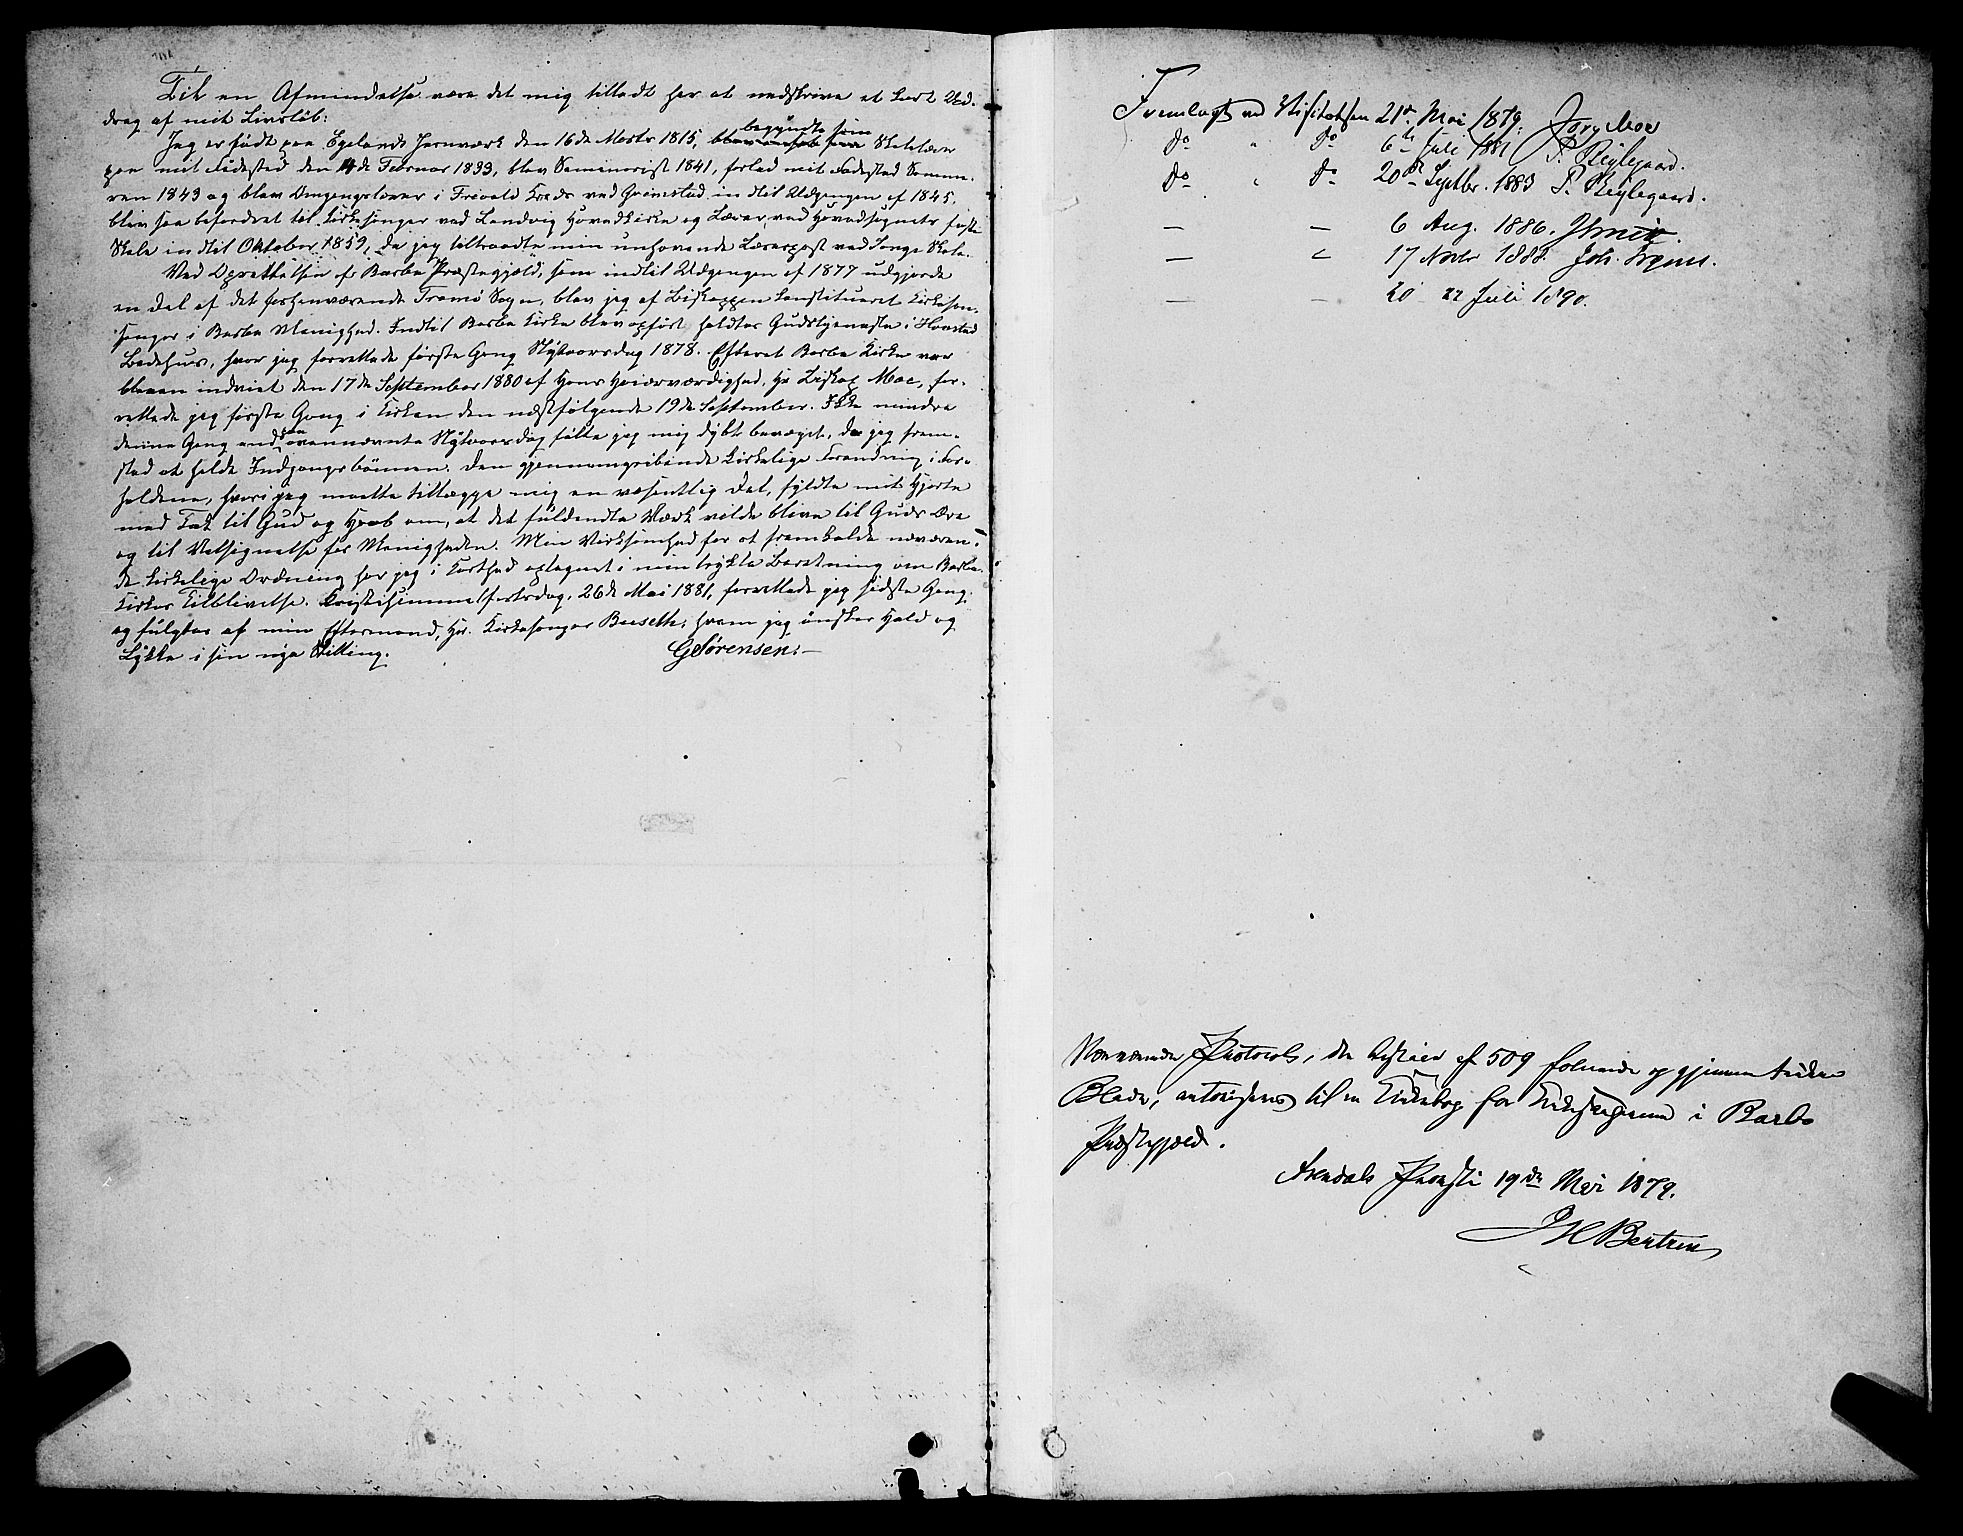 Til en Afmindelse være det mig tilladt her at nedskrive et kort Ud-
drag af mit Livsløb:
Jeg er født paa Egelands Jernværk den 16de Marts 1815, begyndte som Skolelærer
paa mit Fødested den 4de Februar 1833, blev Seminarist 1841, forlod mit Fødested Somme-
ren 1843 og blev Omgangslærer i Frevold Kreds ved Grimstad indtil Udgangen af 1845,
blev saa befordret til Kirkesanger ved Landvig Hovedkirke og Lærer ved Hovedsognets faste
Skole indtil Oktober 1859, da jeg tiltraadte min unhavende Lærerpost ved Songe Skole.
Ved Oprettelsen af Barbo Præstegjæld, som indtil Udgangen af 1877 udgjorde
en Del af det forhenværende Tromø Sogn, blev jeg af Biskoppen konstitueret Kirkesan-
sanger i Barbo Menighed. Indtil Barbo Kirke blev opført holdtes Gudstjeneste i Harstad
Bedehus, hvor jeg forrettede første Gang Nytaarsdag 1878. Efterat Barbo Kirke var
bleven indviet den 17de September 1880 af Hans Høiærværdighed, Hr Biskop Moe, for-
rettede jeg første Gang i Kirken den næstfølgende 19de September. Ikke mindre
denne Gang end paa ovennævnte Nytaarsdag følte jeg mig dybt bevæget, da jeg frem-
stod at holde Indgangsbønnen. Den gjennemgribende kirkelige Forandring i For-
holdene, hvori jeg maatte tillægge mig en væsentlig Del, fyldte mit Hjerte
med Tak til Gud og Haab om, at det fuldendte Værk vilde blive til Guds Ære
og til Velsignelse for Menigheden. Min Virksomhed for at fremkalde nuværen-
de kirkelige Ordning har jeg i Korthed optegnet i min trykte Beretning om Barbo
Kirkes Tilblivelse. Kristihimmelfartsdag, 26de Mai 1881, forrettede jeg sidste Gang
og fulgtes af min Eftermand, Hr. Kirkesanger Buseth, hvem jeg ønsker Held og
Lykke i sin nye Stilling.
GSørensen.
Fremlagt ved Visitatsen 21de Mai 1879. Jørg Moe
do " do 6te Juli 1881 P. Reylegaard.
do " do 20de Septbr. 1883 P. Reylegaard.
— — 6 Aug. 1886. JSmith.
— " 17 Novbr 1888. Joh.
— — 20 22 Juli 1890.
Nærværende Protocol, der bestaaer af 509 folierede og gjennemtrukne
Blade, autoriseres til en Kirkebog for Kirkesangeren i Barbo
Præstegjæld.
Arendals Provsti 19de Mai 1879.
JHBerntsen